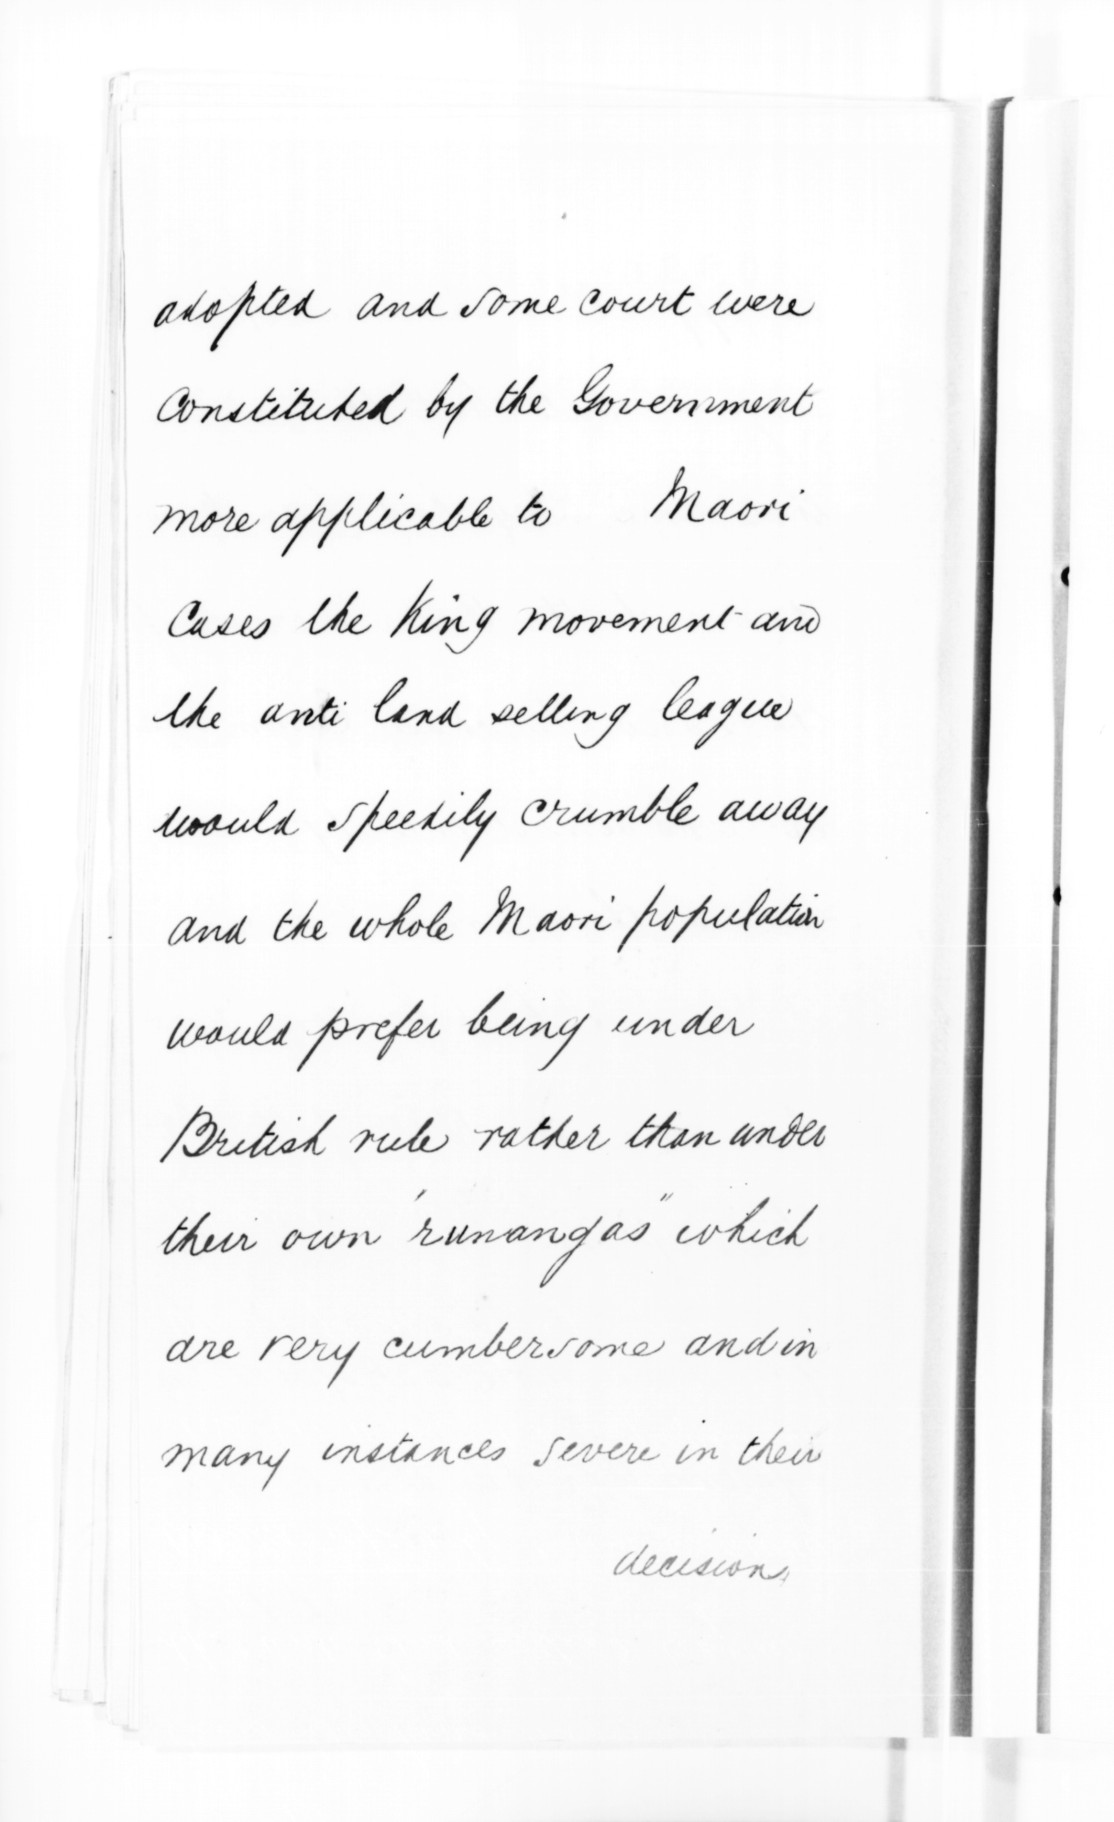 adopted and some court were
constituted by the Government
more applicable to Maori
cases the King movement and
the anti land selling league
would speedily crumble away
and the whole Maori population
would prefer being under
British rule rather than under
their own 'runangas" which
are very cumbersome and in
many instances severe in their
decisions